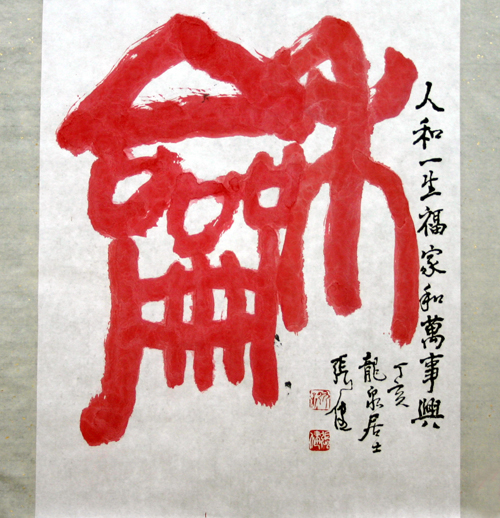 龢
人和一生福家和萬事興
丁亥
龍泉居士
張健